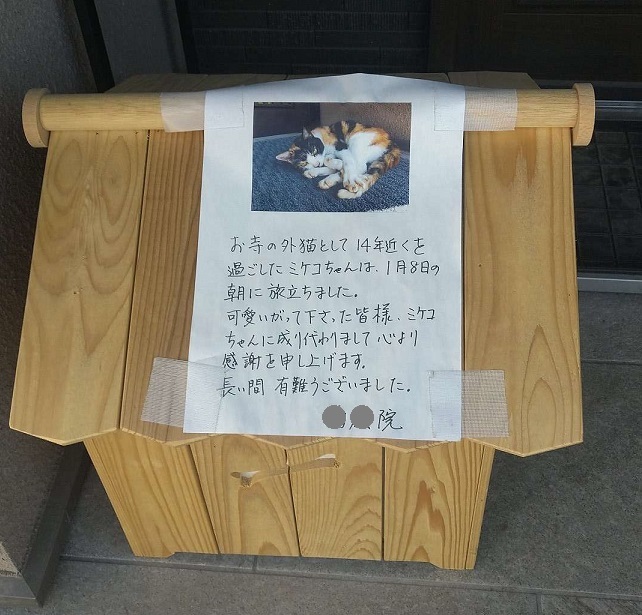 お寺の外猫として14年近くを
過ごしたミケコちゃんは、1月8日の
朝に旅立ちました。
可愛いがって下さった皆様、ミケコ
ちゃんに成り代わりまして心より
感謝を申し上げます。
長い間 有難うございました。
院